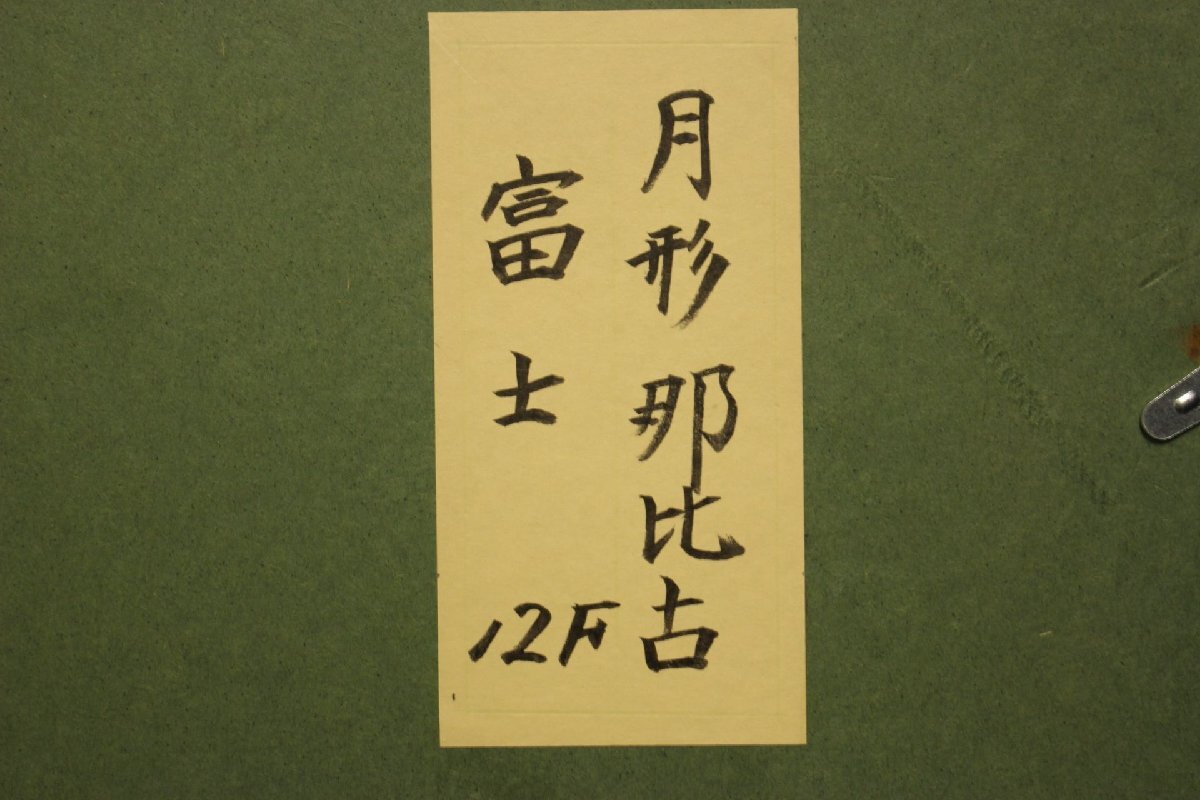 月形那比古
富士
12F